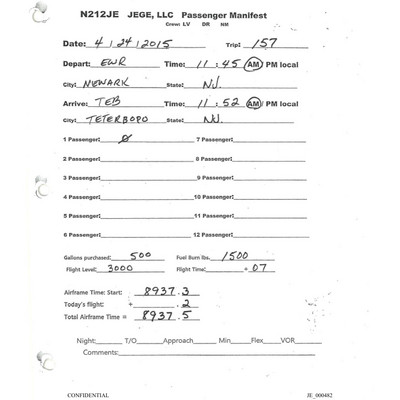 N212JE JEGE, LLC Passenger Manifest
Crew: LV DR NM
Date: 4/24/2015 Trip: 157
Depart: EWR Time: 11:45 AM/ PM local
City: NEWARK State: NJ.
Arrive: TEB Time: 11:52 AM/ PM local
City: TETERBORO State: NJ.
1 Passenger: 0 7 Passenger:
2 Passenger: 8 Passenger:
3 Passenger: 9 Passenger:
4 Passenger: 10 Passenger:
5 Passenger: 11 Passenger:
6 Passenger: 12 Passenger:
Gallons purchased: 500 Fuel Burn lbs. 1500
Flight Level: 3000 Flight Time: + 07
Airframe Time: Start: 8937.3
Today's flight: + .2
Total Airframe Time = 8937.5
Night: T/O Approach Min Flex VOR
Comments:
CONFIDENTIAL JE_000482